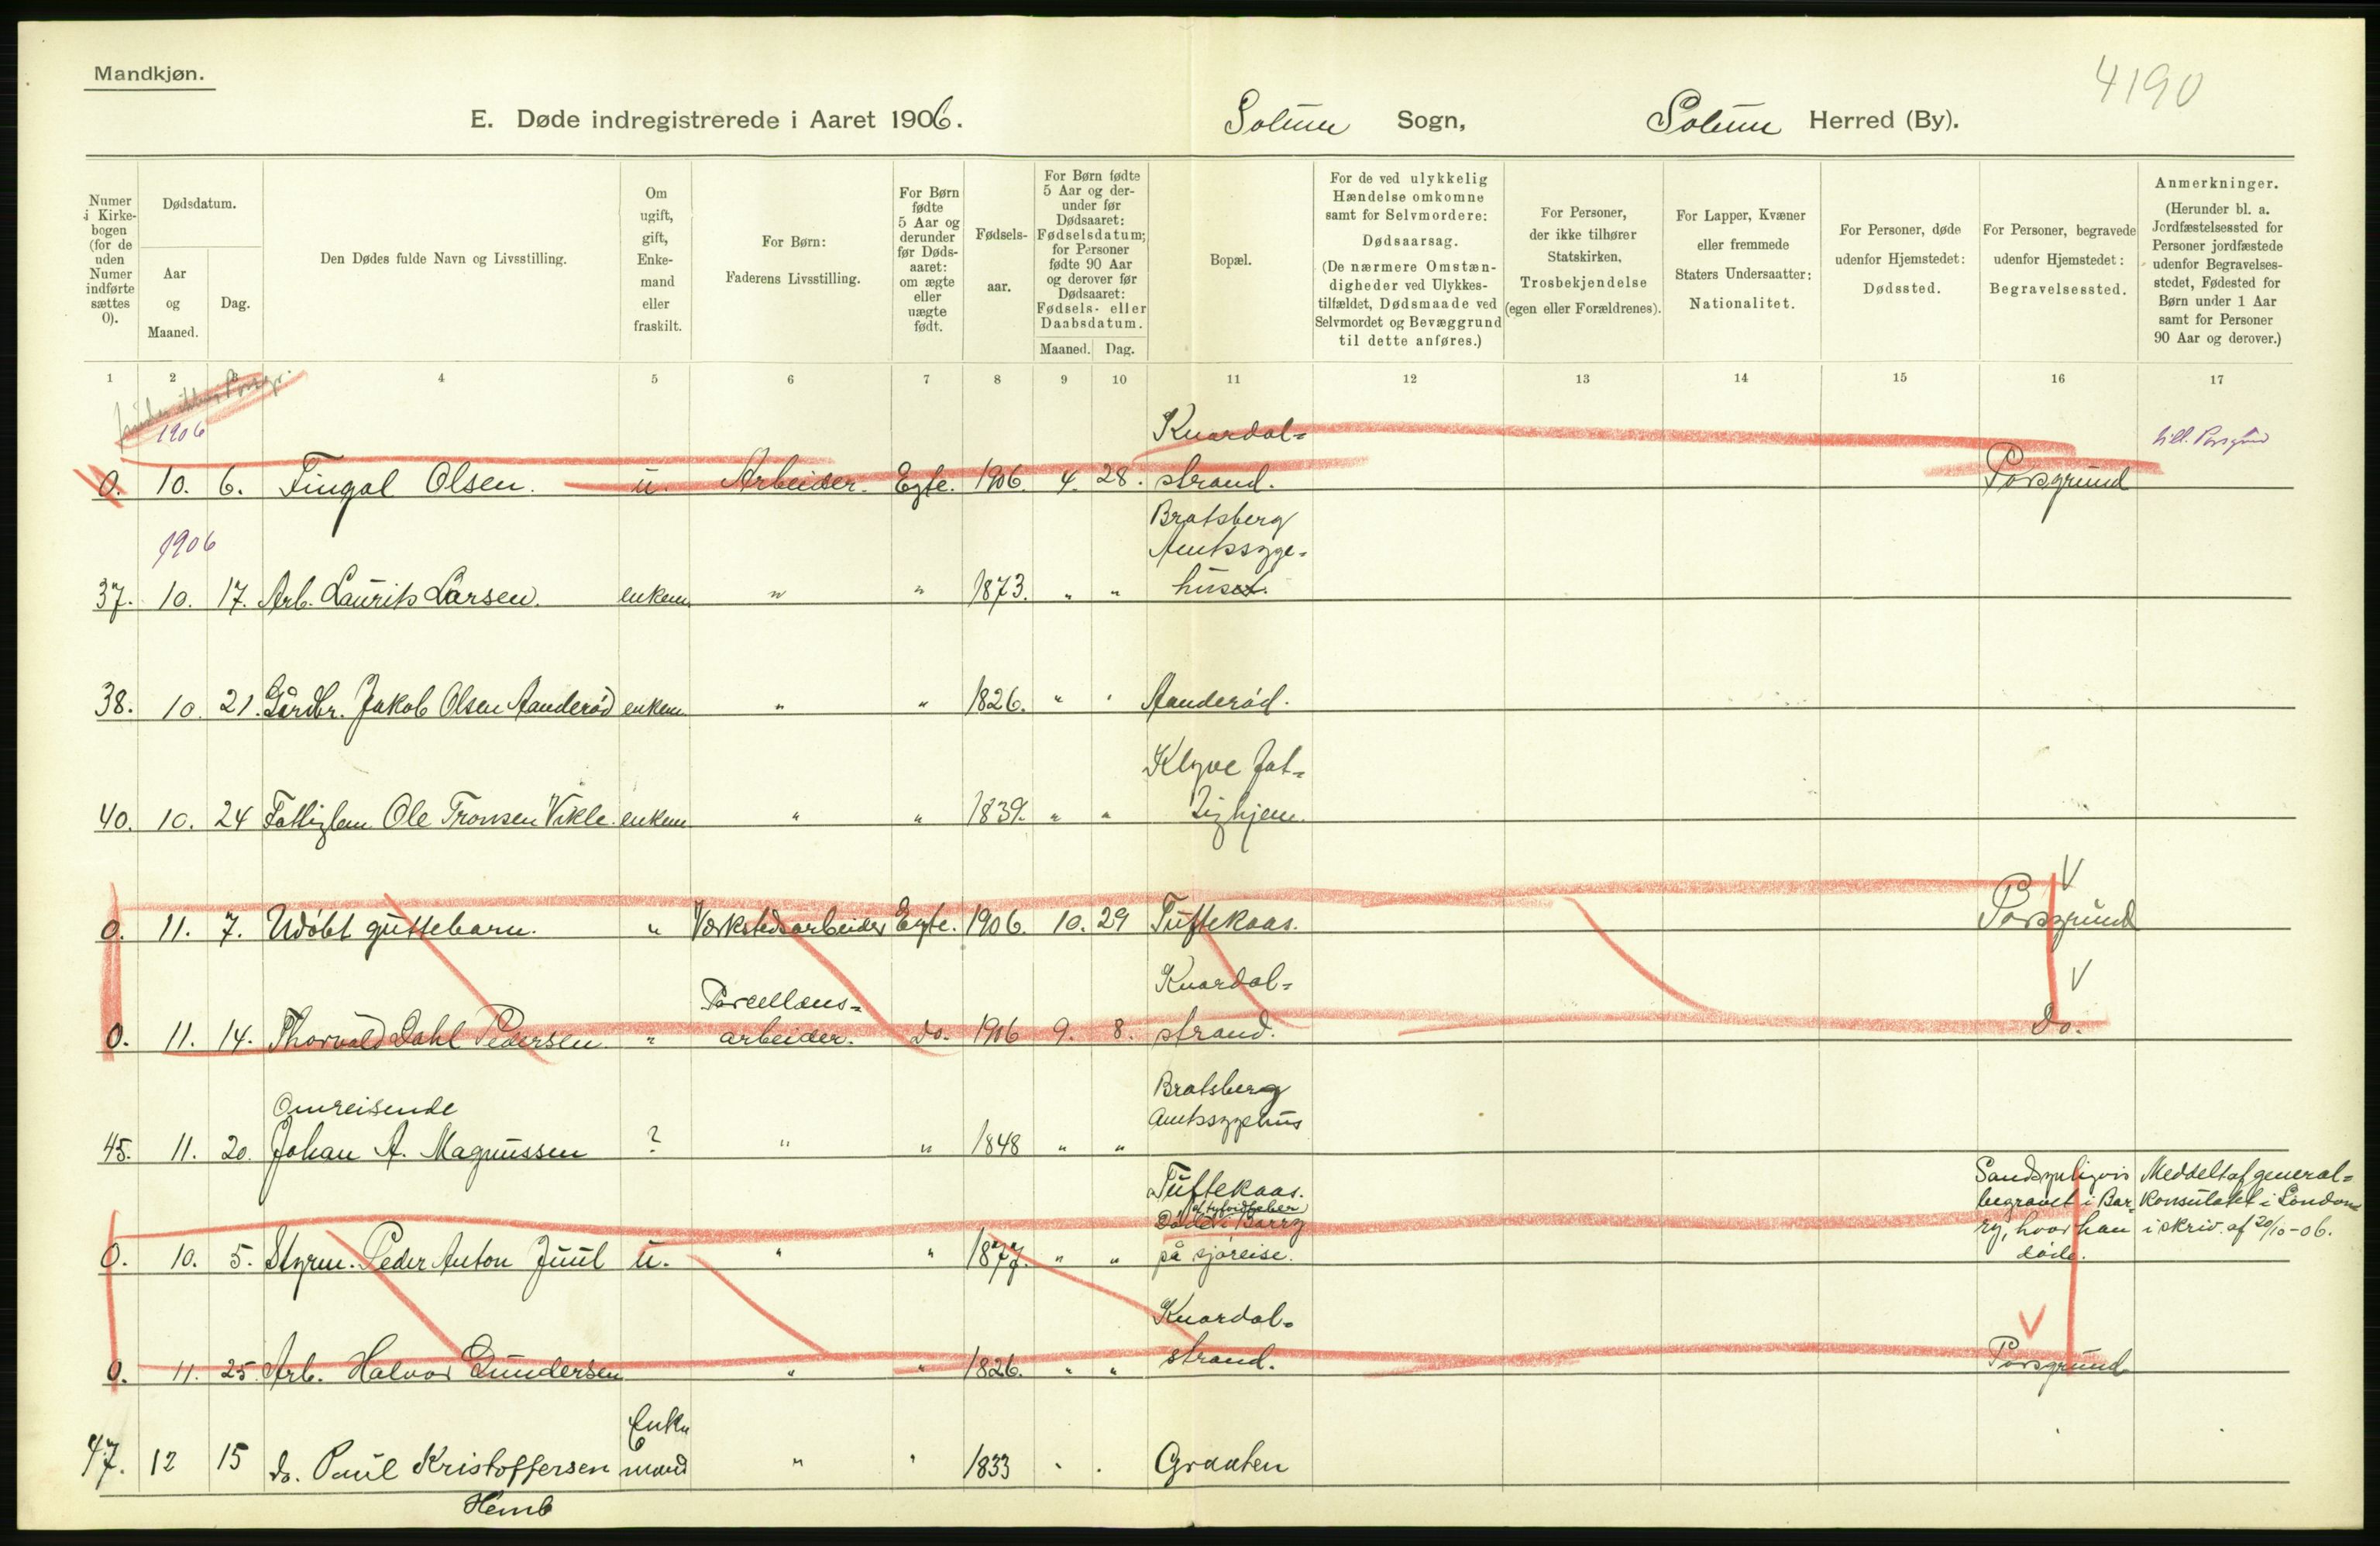 Mandkjøn.
4190
E. Døde indregistrerede i Aaret 1906. Solum Sogn, Solum Herred (By).
Numer i Kirkebogen (for de uden Numer indførte sættes 0).
Dødsdatum.
Aar og Maaned.
Dag.
Den Dødes fulde Navn og Livsstilling.
Om ugift, gift, Enkemand eller fraskilt.
For Børn: Faderens Livsstilling.
For Børn fødte 5 Aar og derunder før Dødsaaret: om ægte eller uægte født.
Fødselsaar.
For Børn fødte 5 Aar og derunder før Dødsaaret: Fødselsdatum; for Personer fødte 90 Aar og derover før Dødsaaret: Fødsels- eller Daabsdatum.
Maaned. Dag.
Bopæl.
For de ved ulykkelig Hændelse omkomne samt for Selvmordere: Dødsaarsag. (De nærmere Omstændigheder ved Ulykkestilfældet, Dødsmaade ved Selvmordet og Bevæggrund til dette anføres.)
For Personer, der ikke tilhører Statskirken, Trosbekjendelse (egen eller Forældrenes).
For Lapper, Kvæner eller fremmede Staters Undersaatter: Nationalitet.
For Personer, døde udenfor Hjemstedet: Dødssted.
For Personer, begravede udenfor Hjemstedet: Begravelsessted.
Anmerkninger. (Herunder bl. a. Jordfæstelsessted for Personer jordfæstede udenfor Begravelsesstedet, Fødested for Børn under 1 Aar samt for Personer 90 Aar og derover.)
1 2 3 4 5 6 7 8 9 10 11 12 13 14 15 16 17
1906
Knardal=
0. 10. 6. Fingal Olsen. u. Arbeider. Egte. 1906. 4. 28. strand. Porsgrund
1906
Bratsberg
Amtssyge=
37. 10. 17. Arb. Laurits Larsen. enkem. " " 1873. " " huset.
38. 10. 21. Gårdbr. Jakob Olsen Aanderød enkem. " " 1826. " " Aanderød.
Klyve Fat=
40. 10. 24 Fattiglem Ole Tronsen Vikle. enkem. " " 1839. " " tighjem.
0. 11. 7. Udøbt guttebarn. " Værkstedsarbeider Egte. 1906. 10. 29 Tuftekaas. Porsgrund
Porcellæns= Knardal=
0. 11. 14. Thorvald Dahl Pedersen. " arbeider. Do. 1906 9. 8. strand. Do.
Omreisende Bratsberg
Amtssygehus
45. 11. 20. Johan A. Magnussen ? " " 1848 " "
Tuftekaas.
af tyfoidfeber
Døde i Barry
0. 10. 5. Styrm. Peder Anton Juul u. " " 1877. " " på sjøreise.
Sandsynligvis begravet i Barry, hvor han døde.
Meddelt af general=
konsulatet i London
i skriv. af 20/10-06.
Knardal=
0. 11. 25. Arb. Halvor Gundersen " " 1826. " " strand. Porsgrund
Enke
47. 12 15 do. Paul Kristoffersen mand " " 1833 " " Graaten
Hemb